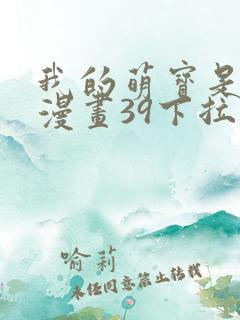 我的萌寶是
漫畫39下拉
喻莉
未经同意禁止转载